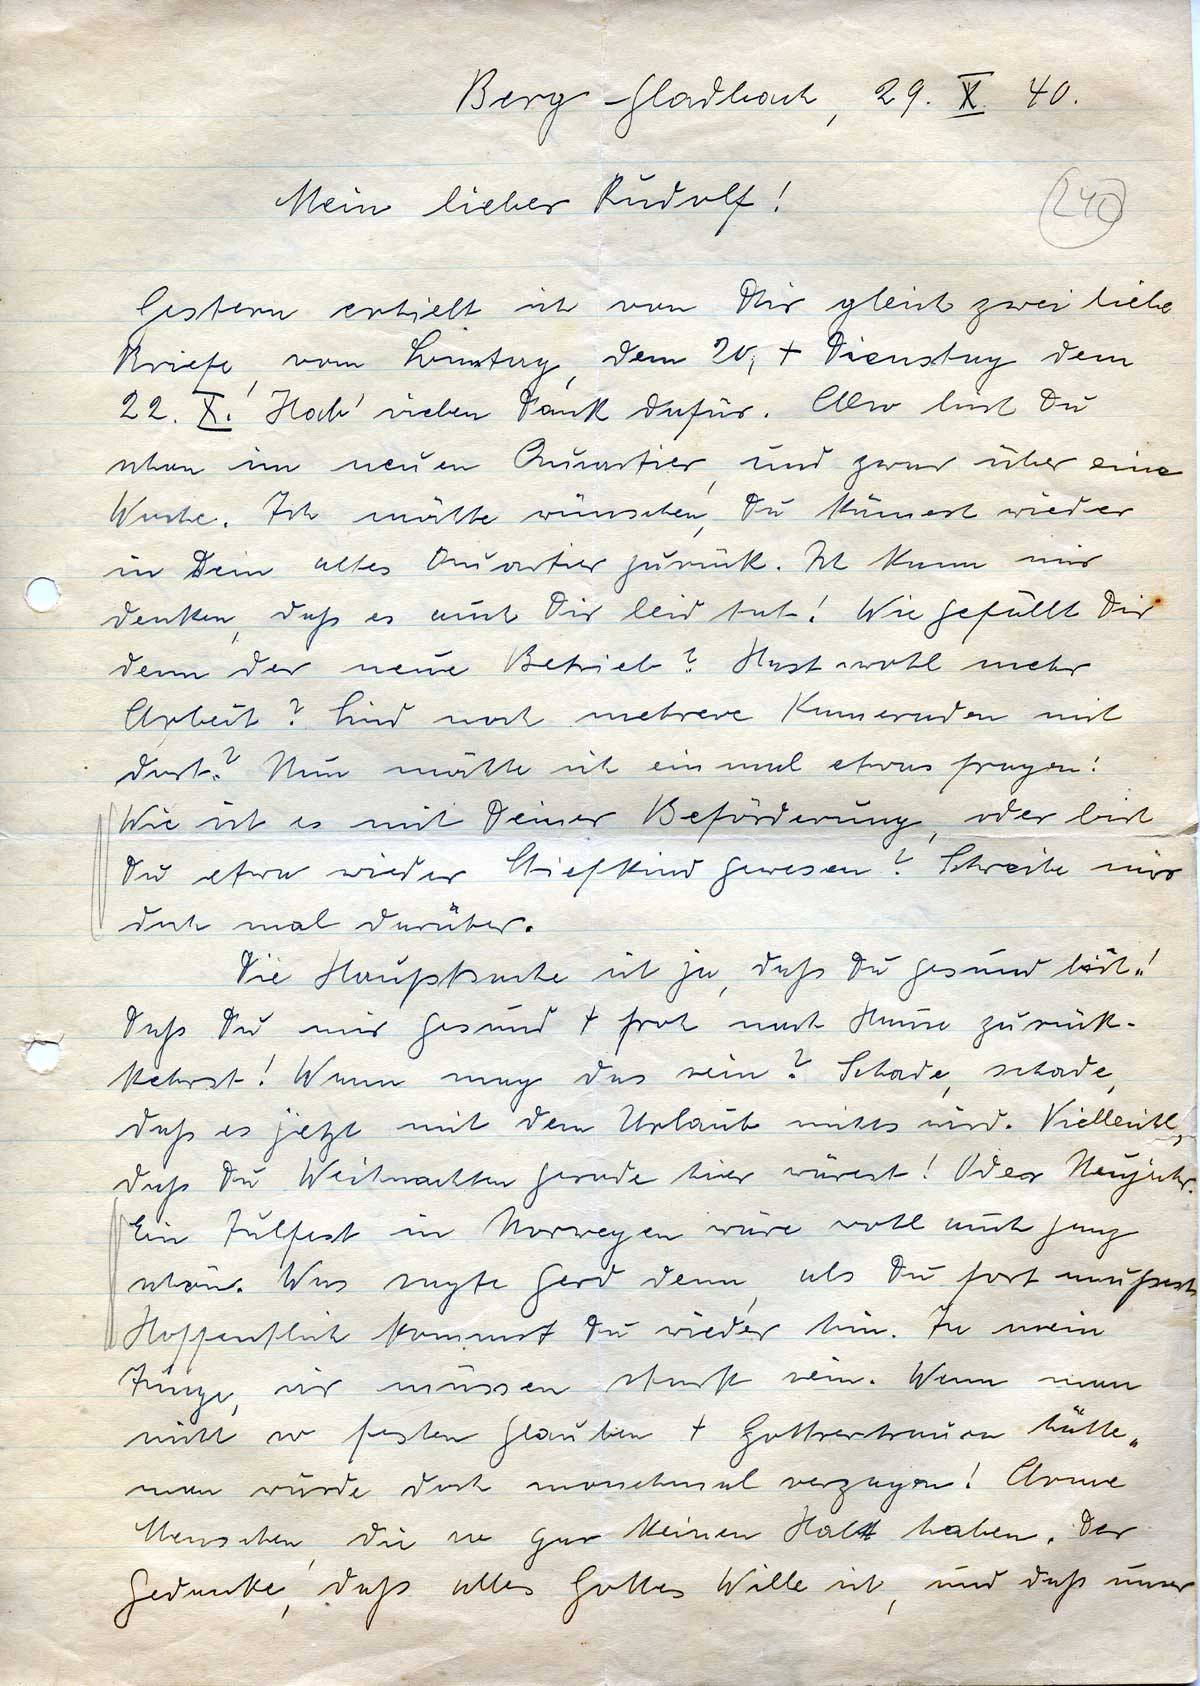 Berg-Gladbach, 29. X. 40.
Mein lieber Rudolf!
240
Gestern erhielt ich von Dir gleich zwei liebe
Briefe, vom Sonntag, dem 20, + Dienstag dem
22. X.! Hab' vielen Dank dafür. Also bist Du
schon im neuen Quartier, und zwar über eine
Woche. Ich möchte wünschen, Du kämest wieder
in Dein altes Quartier zurück. Ich kann mir
denken, daß es auch Dir leid tut! Wie gefällt Dir
denn der neue Betrieb? Hast wohl mehr
Arbeit? Sind noch mehrere Kameraden mit
dort? Nun möchte ich einmal etwas fragen:
Wie ist es mit Deiner Beförderung, oder bist
Du etwa wieder Stiefkind gewesen? Schreibe mir
doch mal darüber.
Die Hauptsache ist ja, daß Du gesund bist!
Daß Du mir gesund + froh nach Hause zurück-
kehrst! Wann mag das sein? Schade, schade,
daß es jetzt mit dem Urlaub nichts wird. Vielleicht,
daß Du Weihnachten gerade hier wärest! Oder Neujahr.
Ein Julfest in Norwegen wäre wohl auch ganz
schön. Was sagte Gerd denn, als Du fort mußtest
Hoffentlich kommst Du wieder hin. Ja mein
Junge, wir müssen stark sein. Wenn man
nicht so festen Glauben + Gottvertrauen hätte,
man würde doch manchmal verzagen! Arme
Menschen, die so gar keinen Halt haben. Der
Gedanke, daß alles Gottes Wille ist, und daß unser